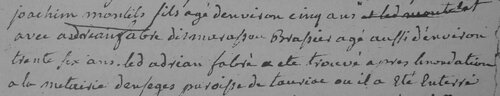 joachim montels fils agé denviron cinq ans et led montels et
avec adrian fabre dit marassou Brassier agé aussi denviron
trente six ans. led adrian fabre a eté trouvé apres linondation
a la metairie denseges paroisse de tauriac ou il a eté Enterré